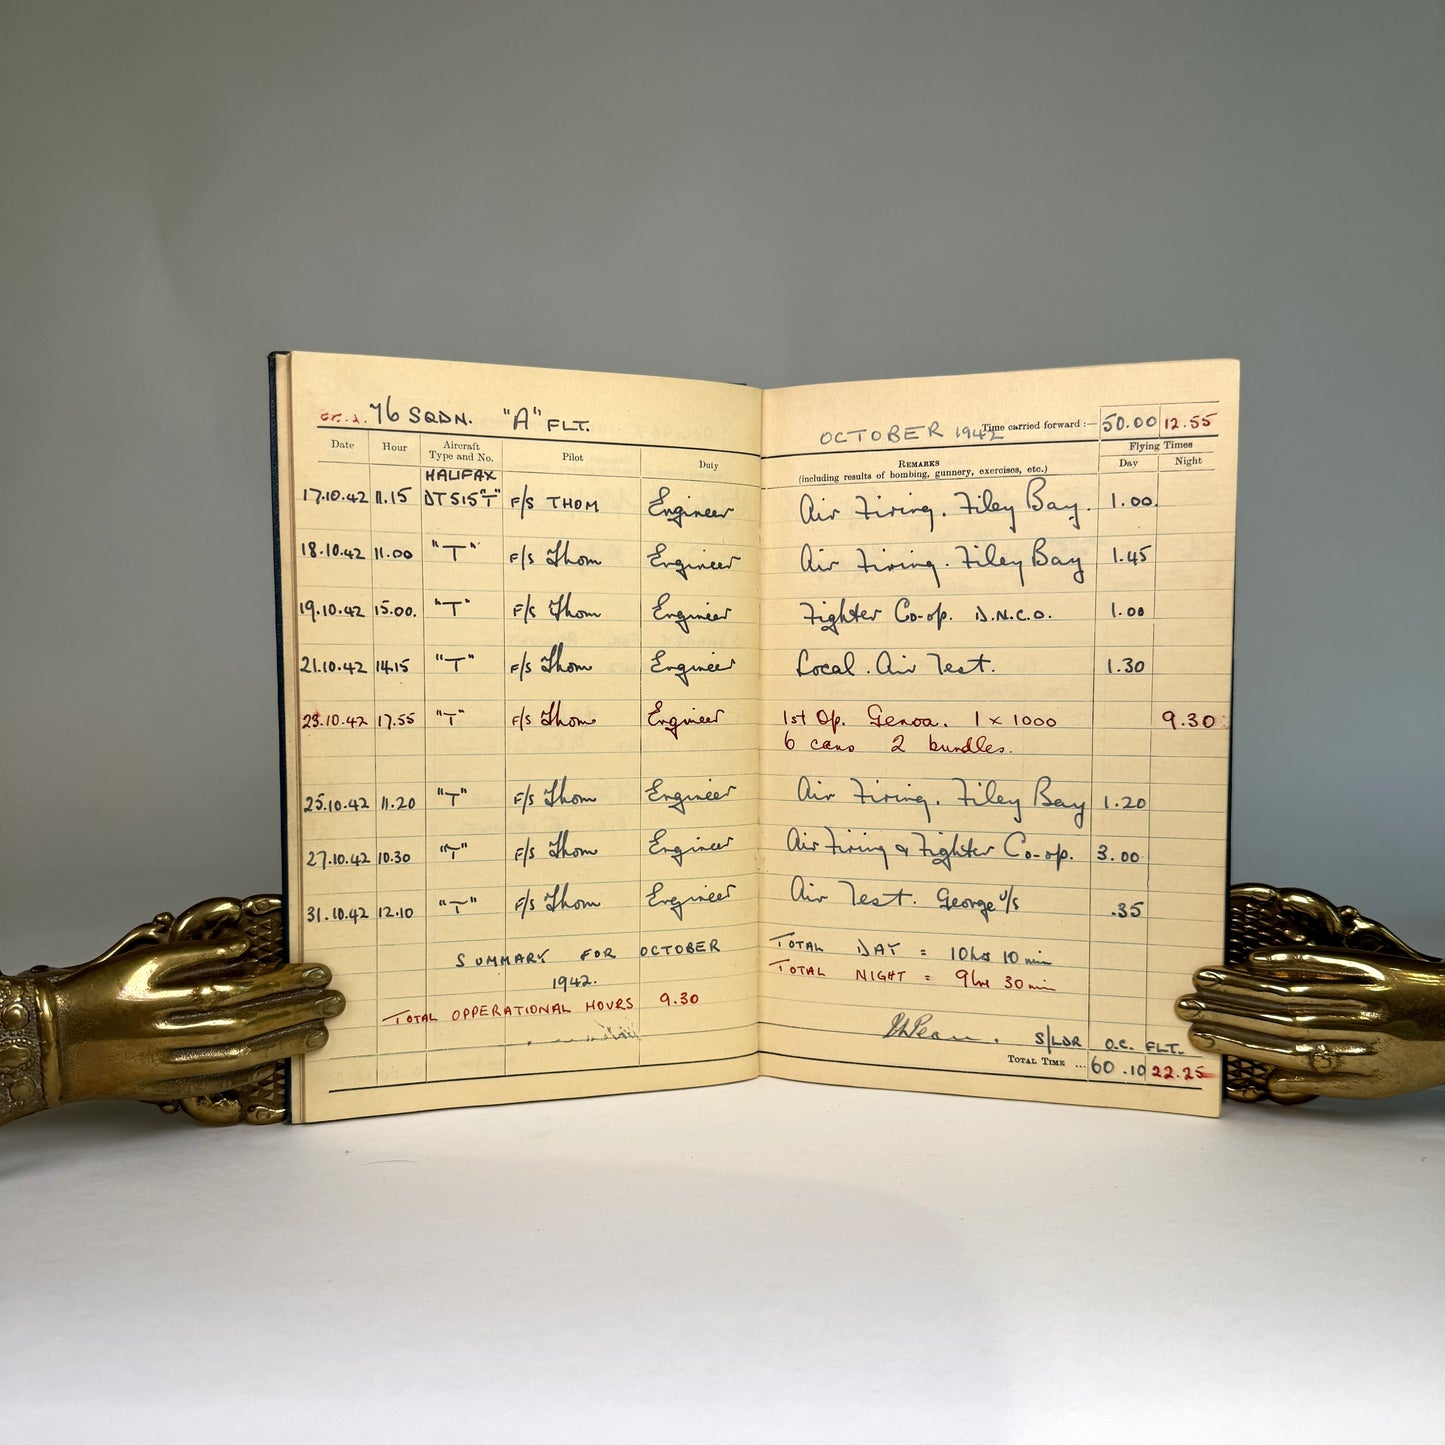 76 SQDN. "A" FLT.
Date Hour Aircraft Type and No. Pilot Duty
HALIFAX
17.10.42 11.15 DT515"T" F/S THOM Engineer
18.10.42 11.00 "T" F/S Thom Engineer
19.10.42 15.00. "T" F/S Thom Engineer
21.10.42 14.15 "T" F/S Thom Engineer
23.10.42 17.55 "T" F/S Thom Engineer
25.10.42 11.20 "T" F/S Thom Engineer
27.10.42 10.30 "T" F/S Thom Engineer
31.10.42 12.10 "T" F/S Thom Engineer
SUMMARY FOR OCTOBER
1942.
TOTAL OPPERATIONAL HOURS 9.30
OCTOBER 1942 Time carried forward :— 50.00 12.55
Flying Times
REMARKS
(including results of bombing, gunnery, exercises, etc.)
Day Night
Air Firing. Filey Bay. 1.00.
Air Firing. Filey Bay 1.45
Fighter Co-op. D.N.C.O. 1.00
Local. Air Test. 1.30
1st Op. Genoa. 1 x 1000 9.30
6 cans 2 bundles.
Air Firing. Filey Bay 1.20
Air Firing & Fighter Co-op. 3.00
Air Test. George U/S .35
TOTAL DAY = 10 hrs 10 min
TOTAL NIGHT = 9 hrs 30 min
S/LDR O.C. FLT.
TOTAL TIME ... 60.10 22.25